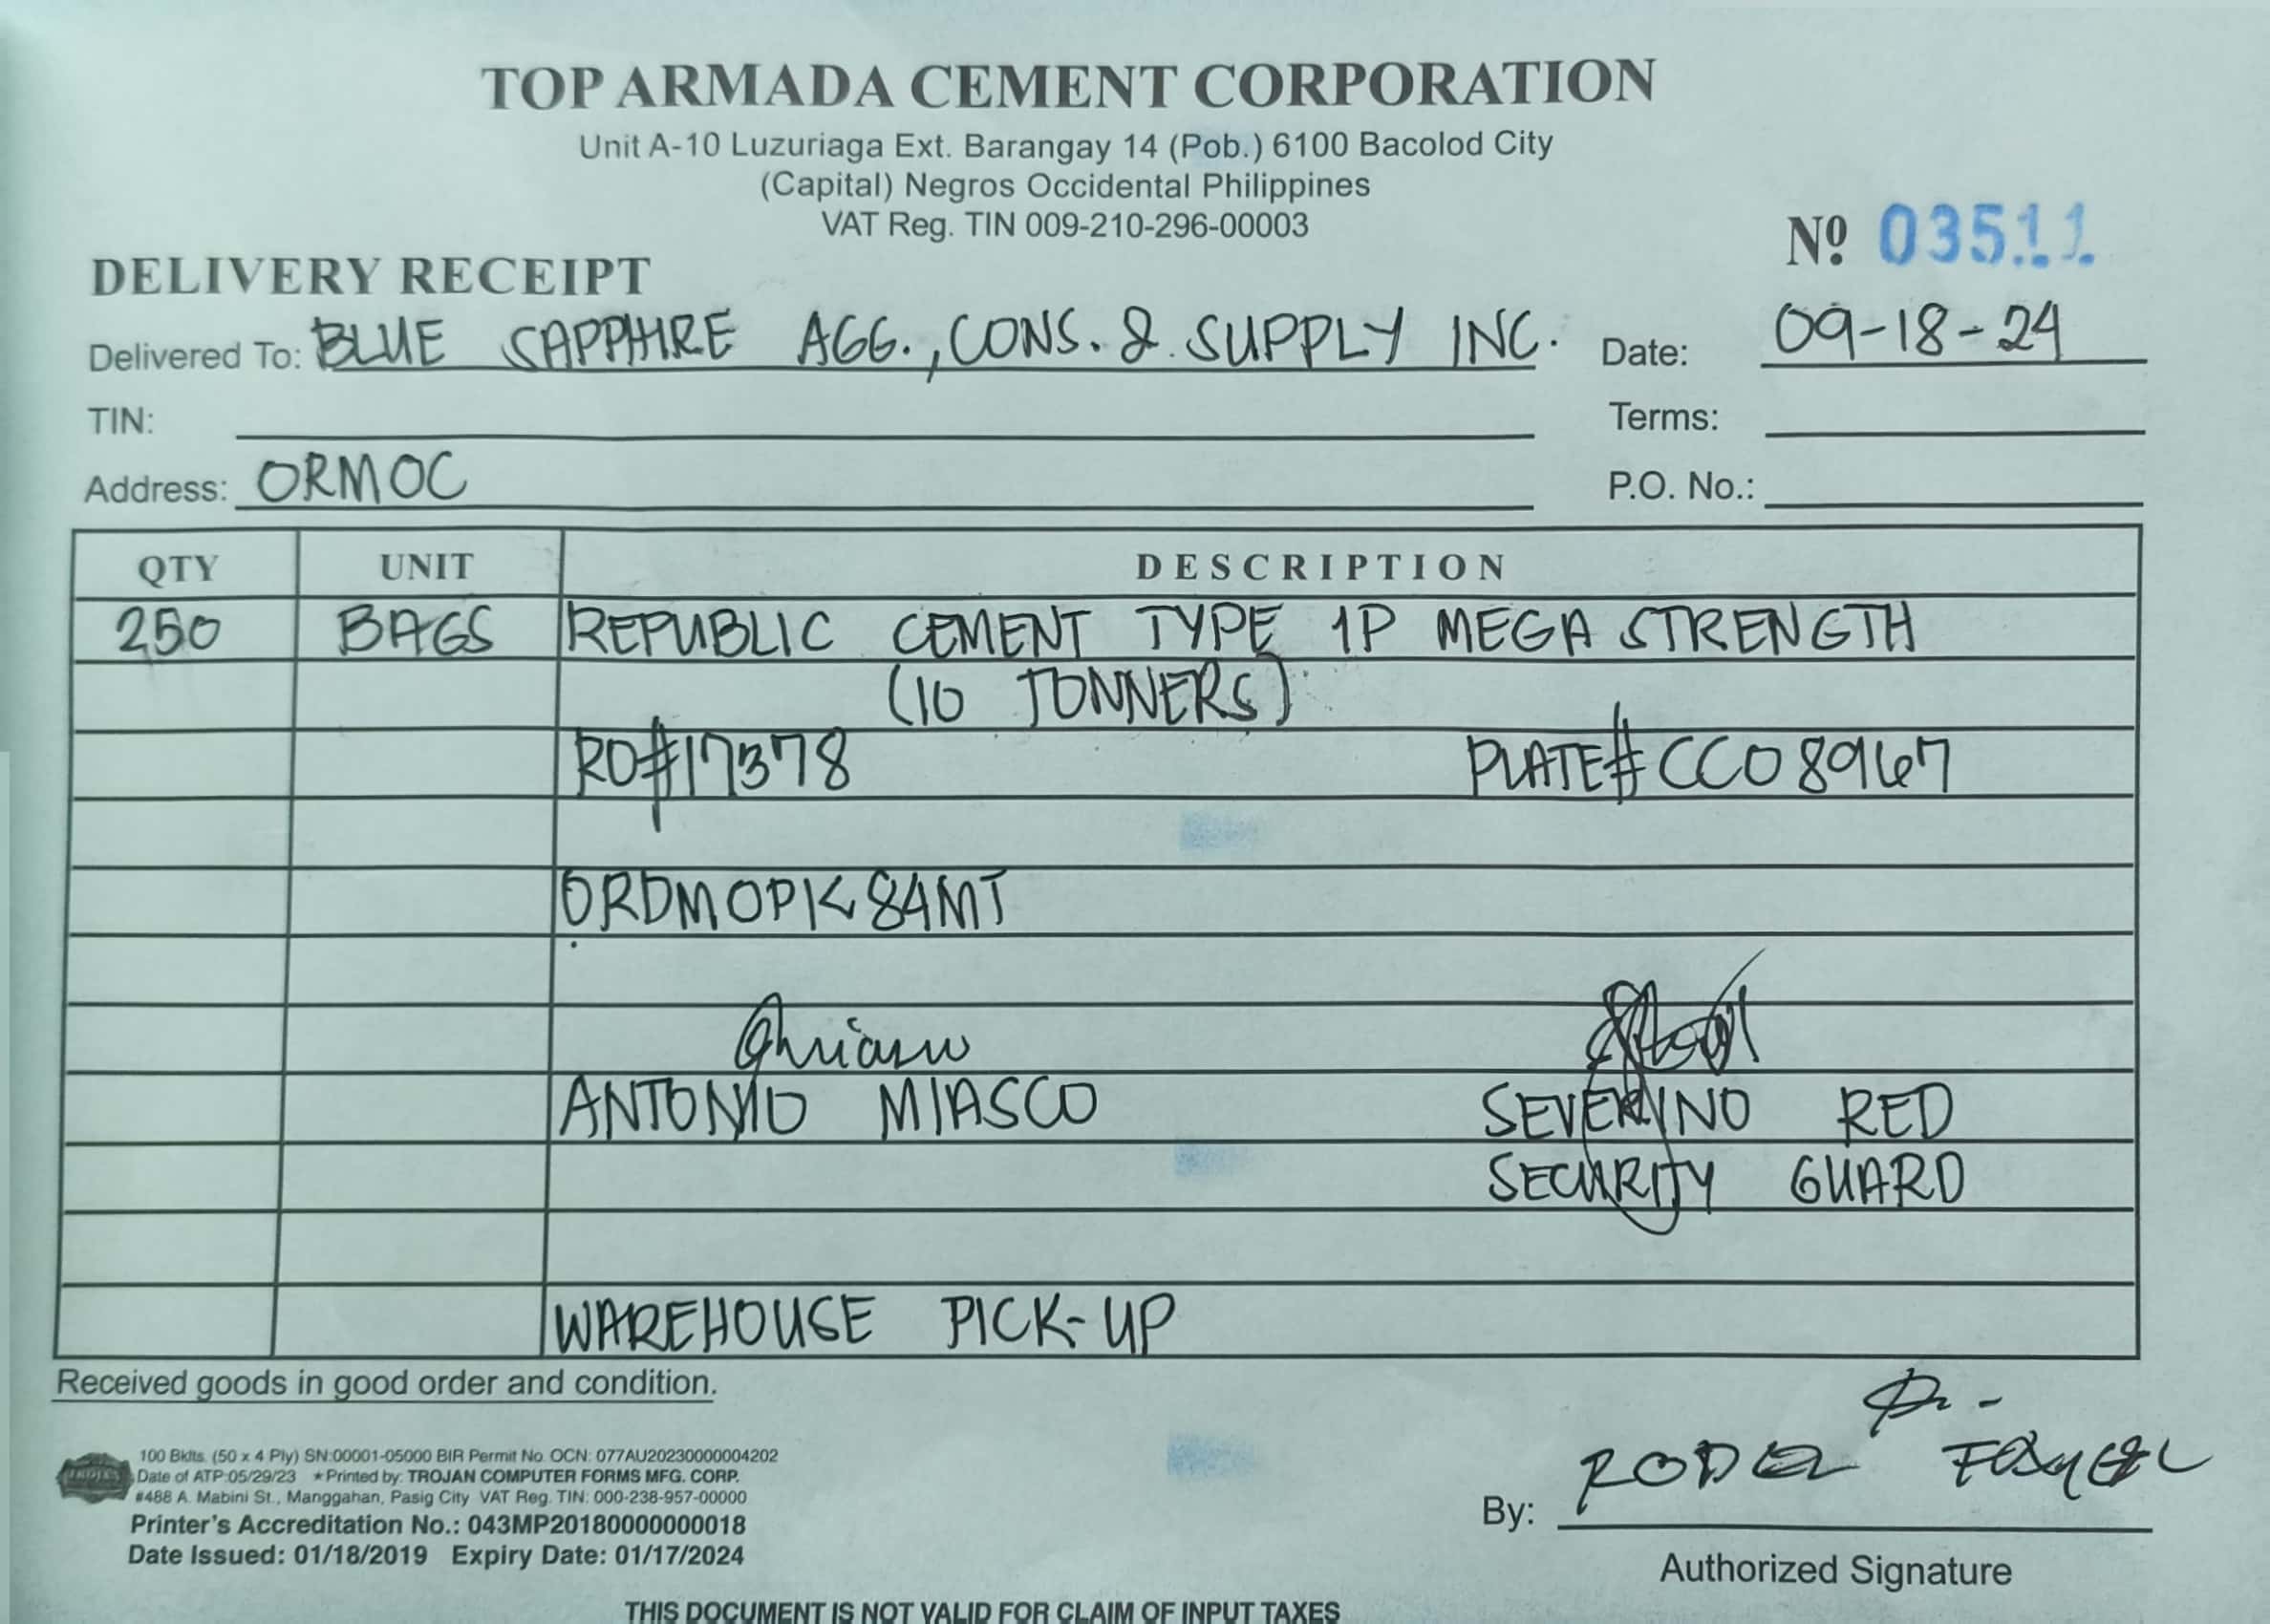 TOP ARMADA CEMENT CORPORATION
Unit A-10 Luzuriaga Ext. Barangay 14 (Pob.) 6100 Bacolod City
(Capital) Negros Occidental Philippines
VAT Reg. TIN 009-210-296-00003
Nº 03511
DELIVERY RECEIPT
Delivered To: BLUE SAPPHIRE AGG., CONS. & SUPPLY INC. Date: 09-18-24
TIN: Terms:
Address: ORMOC P.O. No.:
QTY UNIT DESCRIPTION
250 BAGS REPUBLIC CEMENT TYPE 1P MEGA STRENGTH
(10 TONNERS)
RO#17378 PLATE# CCO 8967
ORDMOPK84MT
ANTONIO MIASCO SEVERINO RED
SECURITY GUARD
WAREHOUSE PICK-UP
Received goods in good order and condition.
100 Bklts. (50 x 4 Ply) SN:00001-05000 BIR Permit No. OCN: 077AU20230000004202
TROJAN Date of ATP:05/29/23 ★Printed by: TROJAN COMPUTER FORMS MFG. CORP.
#488 A. Mabini St., Manggahan, Pasig City VAT Reg. TIN: 000-238-957-00000
Printer's Accreditation No.: 043MP20180000000018
Date Issued: 01/18/2019 Expiry Date: 01/17/2024
By: RODEL
Authorized Signature
THIS DOCUMENT IS NOT VALID FOR CLAIM OF INPUT TAXES